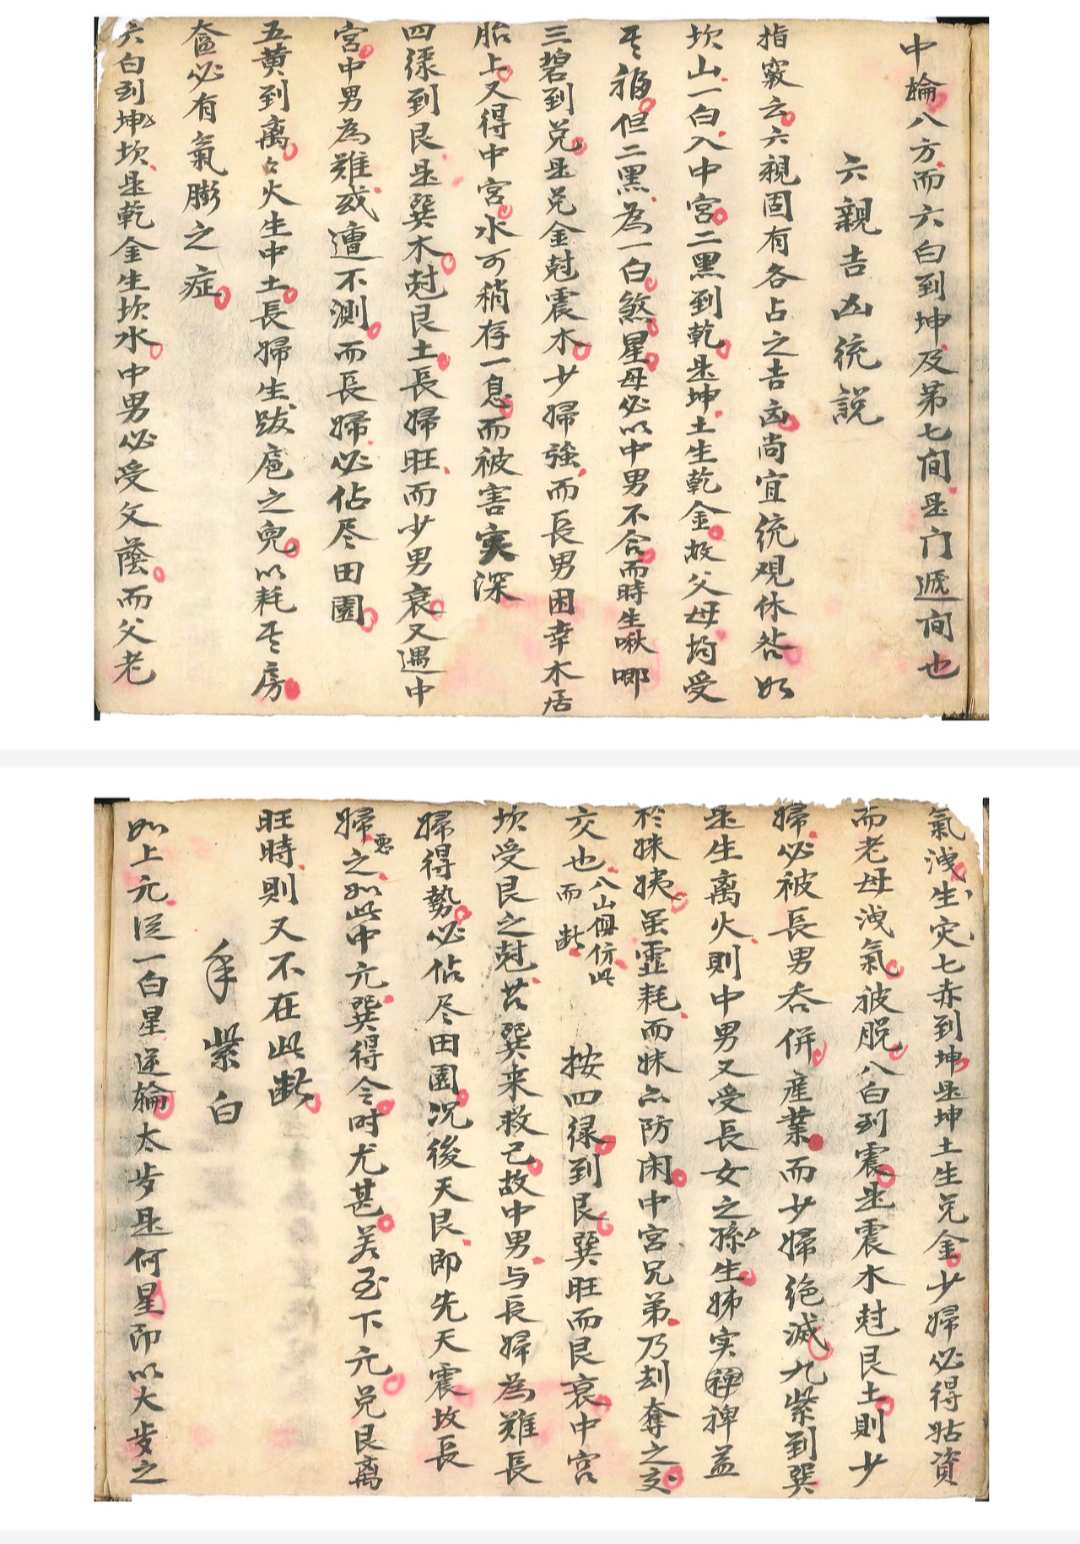 中輪八方而六白到坤及第七間是门遞间也
六親吉凶統說
指竅云六親固有各占之吉凶尚宜統观休咎如
坎山一白入中宮二黑到乾是坤土生乾金故父母均受
其福但二黑為一白煞星母必以中男不合而時生啾唧
三碧到兑是兑金尅震木少婦強而長男困幸木居
胎上又得中宮水可稍存一息而被害实深
四綠到艮是巽木尅艮土長婦旺而少男衰又遇中
宮中男為難或遭不測而長婦必佔尽田園
五黄到离々火生中土長婦生跋扈之兜以耗其房
奩必有氣膨之症
六白到坤坎是乾金生坎水中男必受父蔭而父老
氣洩生灾七赤到坤是坤土生兑金少婦必得姑資
而老母洩氣被脱八白到震是震木尅艮土則少
婦必被長男吞併產業而少婦絕滅九紫到巽
是生离火則中男又受長女之孫生姊实裨益
於妹姨虽霊耗而妹亦防闲中宮兄弟乃刦奪之交
交也八山俱仿此而断 按四禄到艮巽旺而艮衰中宮
坎受艮之尅苦巽来救己故中男与長婦為难長
婦得勢必佔尽田園况後天艮即先天震故長
婦悪之如此中亢巽得令时尤甚若至下元兑艮离
旺時則又不在此断
年紫白
如上元逆一白星逆輪太歩是何星即以大歩之